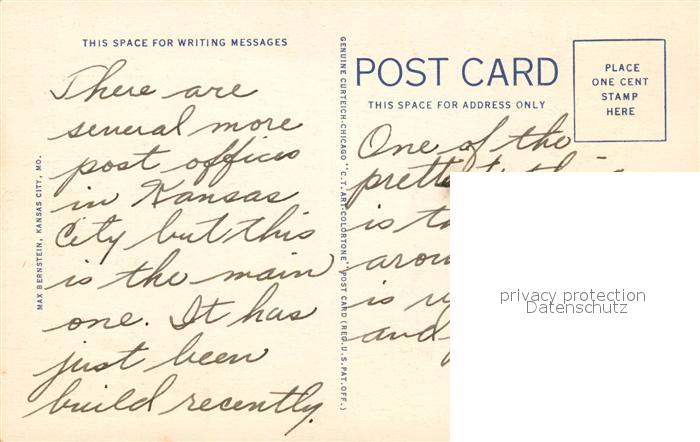 THIS SPACE FOR WRITING MESSAGES
There are
several more
post offices
in Kansas
City but this
is the main
one. It has
just been
build recently.
MAX BERNSTEIN, KANSAS CITY, MO.
GENUINE CURTEICH-CHICAGO "C.T. ART-COLORTONE" POST CARD (REG. U.S. PAT. OFF.)
POST CARD
THIS SPACE FOR ADDRESS ONLY
PLACE
ONE CENT
STAMP
HERE
One of the
is
and
privacy protection
Datenschutz